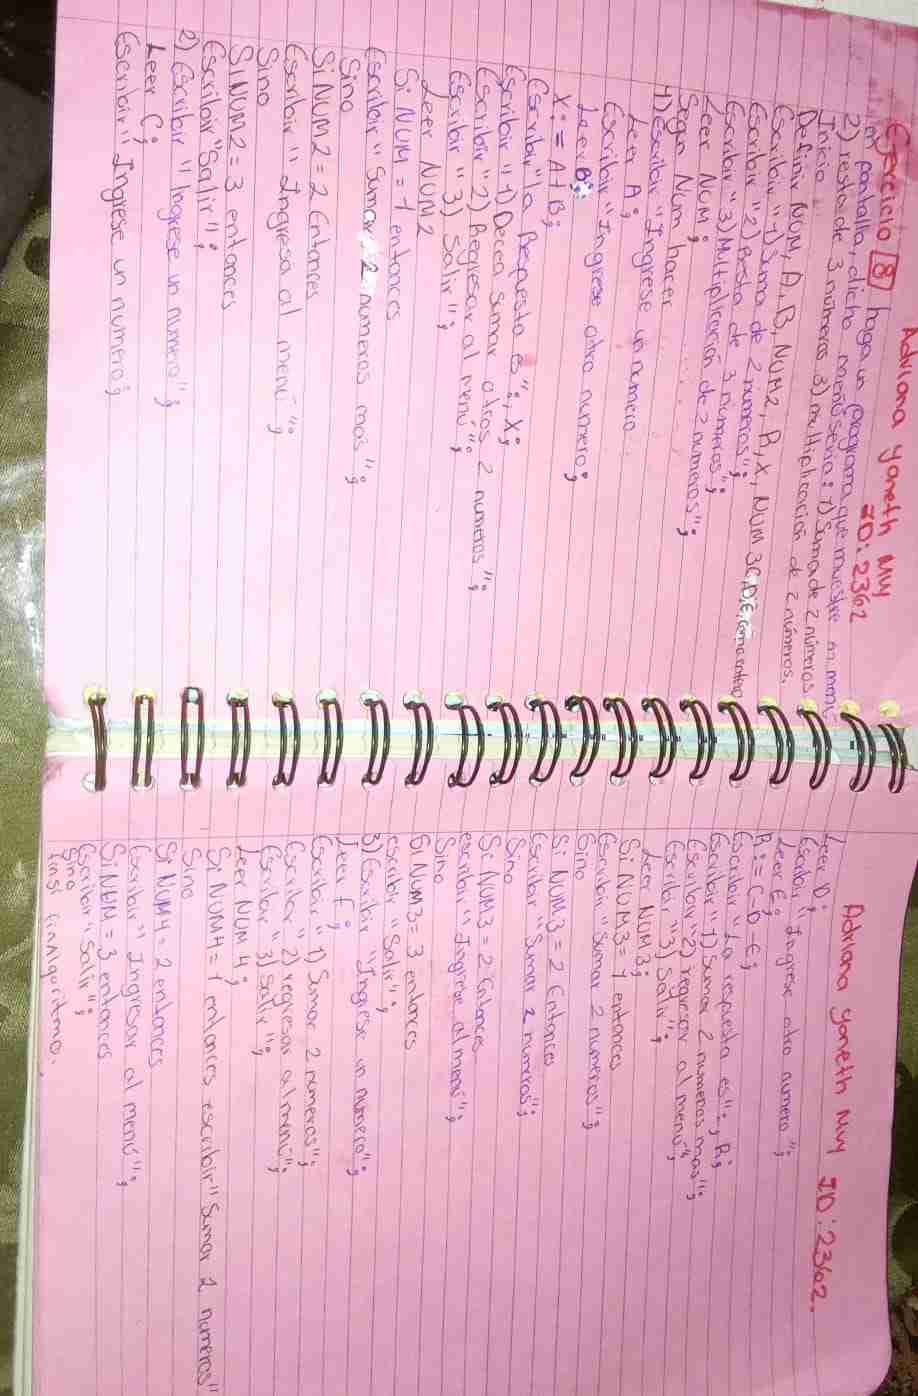 Adriana yaneth My
ID: 2362
Ejercicio 8 haga un programa que muestre un menú
en pantalla, dicho menú seria: 1) Suma de 2 números
2) resta de 3 números 3) multiplicación de 2 números.
Inicio
Definir NUM, A, B, NUM2, R, X, NUM 3 C, D, E, como entero
Escribir "1) Suma de 2 numeros";
Escribir "2) Resta de 3 numeros";
Escribir "3) Multiplicación de 2 numeros";
Leer NUM;
Segun Num hacer
1) Escribir "Ingrese un numero
Leer A;
Escribir "Ingrese otro numero;
Leer B;
X:= A+B;
Escribir "la Respuesta es":, X;
Escribir "1) Decea sumar otros 2 numeros";
Escribir "2) Regresar al menú";
Escribir "3) Salir";
Leer NUM2
Si NUM = 1 entonces
Escribir "Sumar 2 numeros mas";
Sino
Si NUM2 = 2 Entonces
Escribir "Ingresa al menú";
Sino
Si NUM2 = 3 entonces
Escribir "Salir";
2) Escribir "Ingrese un numero";
Leer C;
Escribir "Ingrese un numero;
Adriana yaneth My ID: 2362.
Leer D;
Escribir "Ingrese otro numero";
Leer E;
R:= C-D-E;
Escribir "La respuesta es":, R;
Escribir "1) Sumar 2 numeros mas";
Escribir "2) regresar al menú"
Escribir "3) Salir";
Leer NUM3;
Si NUM3=1 entonces
Escribir "Sumar 2 numeros";
Sino
Si NUM3 = 2 Entonces
Escribir "Sumar 2 numeros";
Sino
Si NUM3 = 2 Entonces
escribir "Ingrese al menú";
Sino
Si NUM3= 3 entonces
escribir "Salir";
3) Escribir "Ingrese un numero";
Leer F;
Escribir "1) Sumar 2 numeros";
Escribir "2) regresar al menú";
Escribir "3) Salir";
Leer NUM 4;
Si NUM4 = 1 entonces escribir "Sumar 2 numeros"
Sino
Si NUM4= 2 entonces
Escribir "Ingresar al menú";
Si NUM = 3 entonces
Escribir "Salir";
Sino
finsi finAlgoritmo.